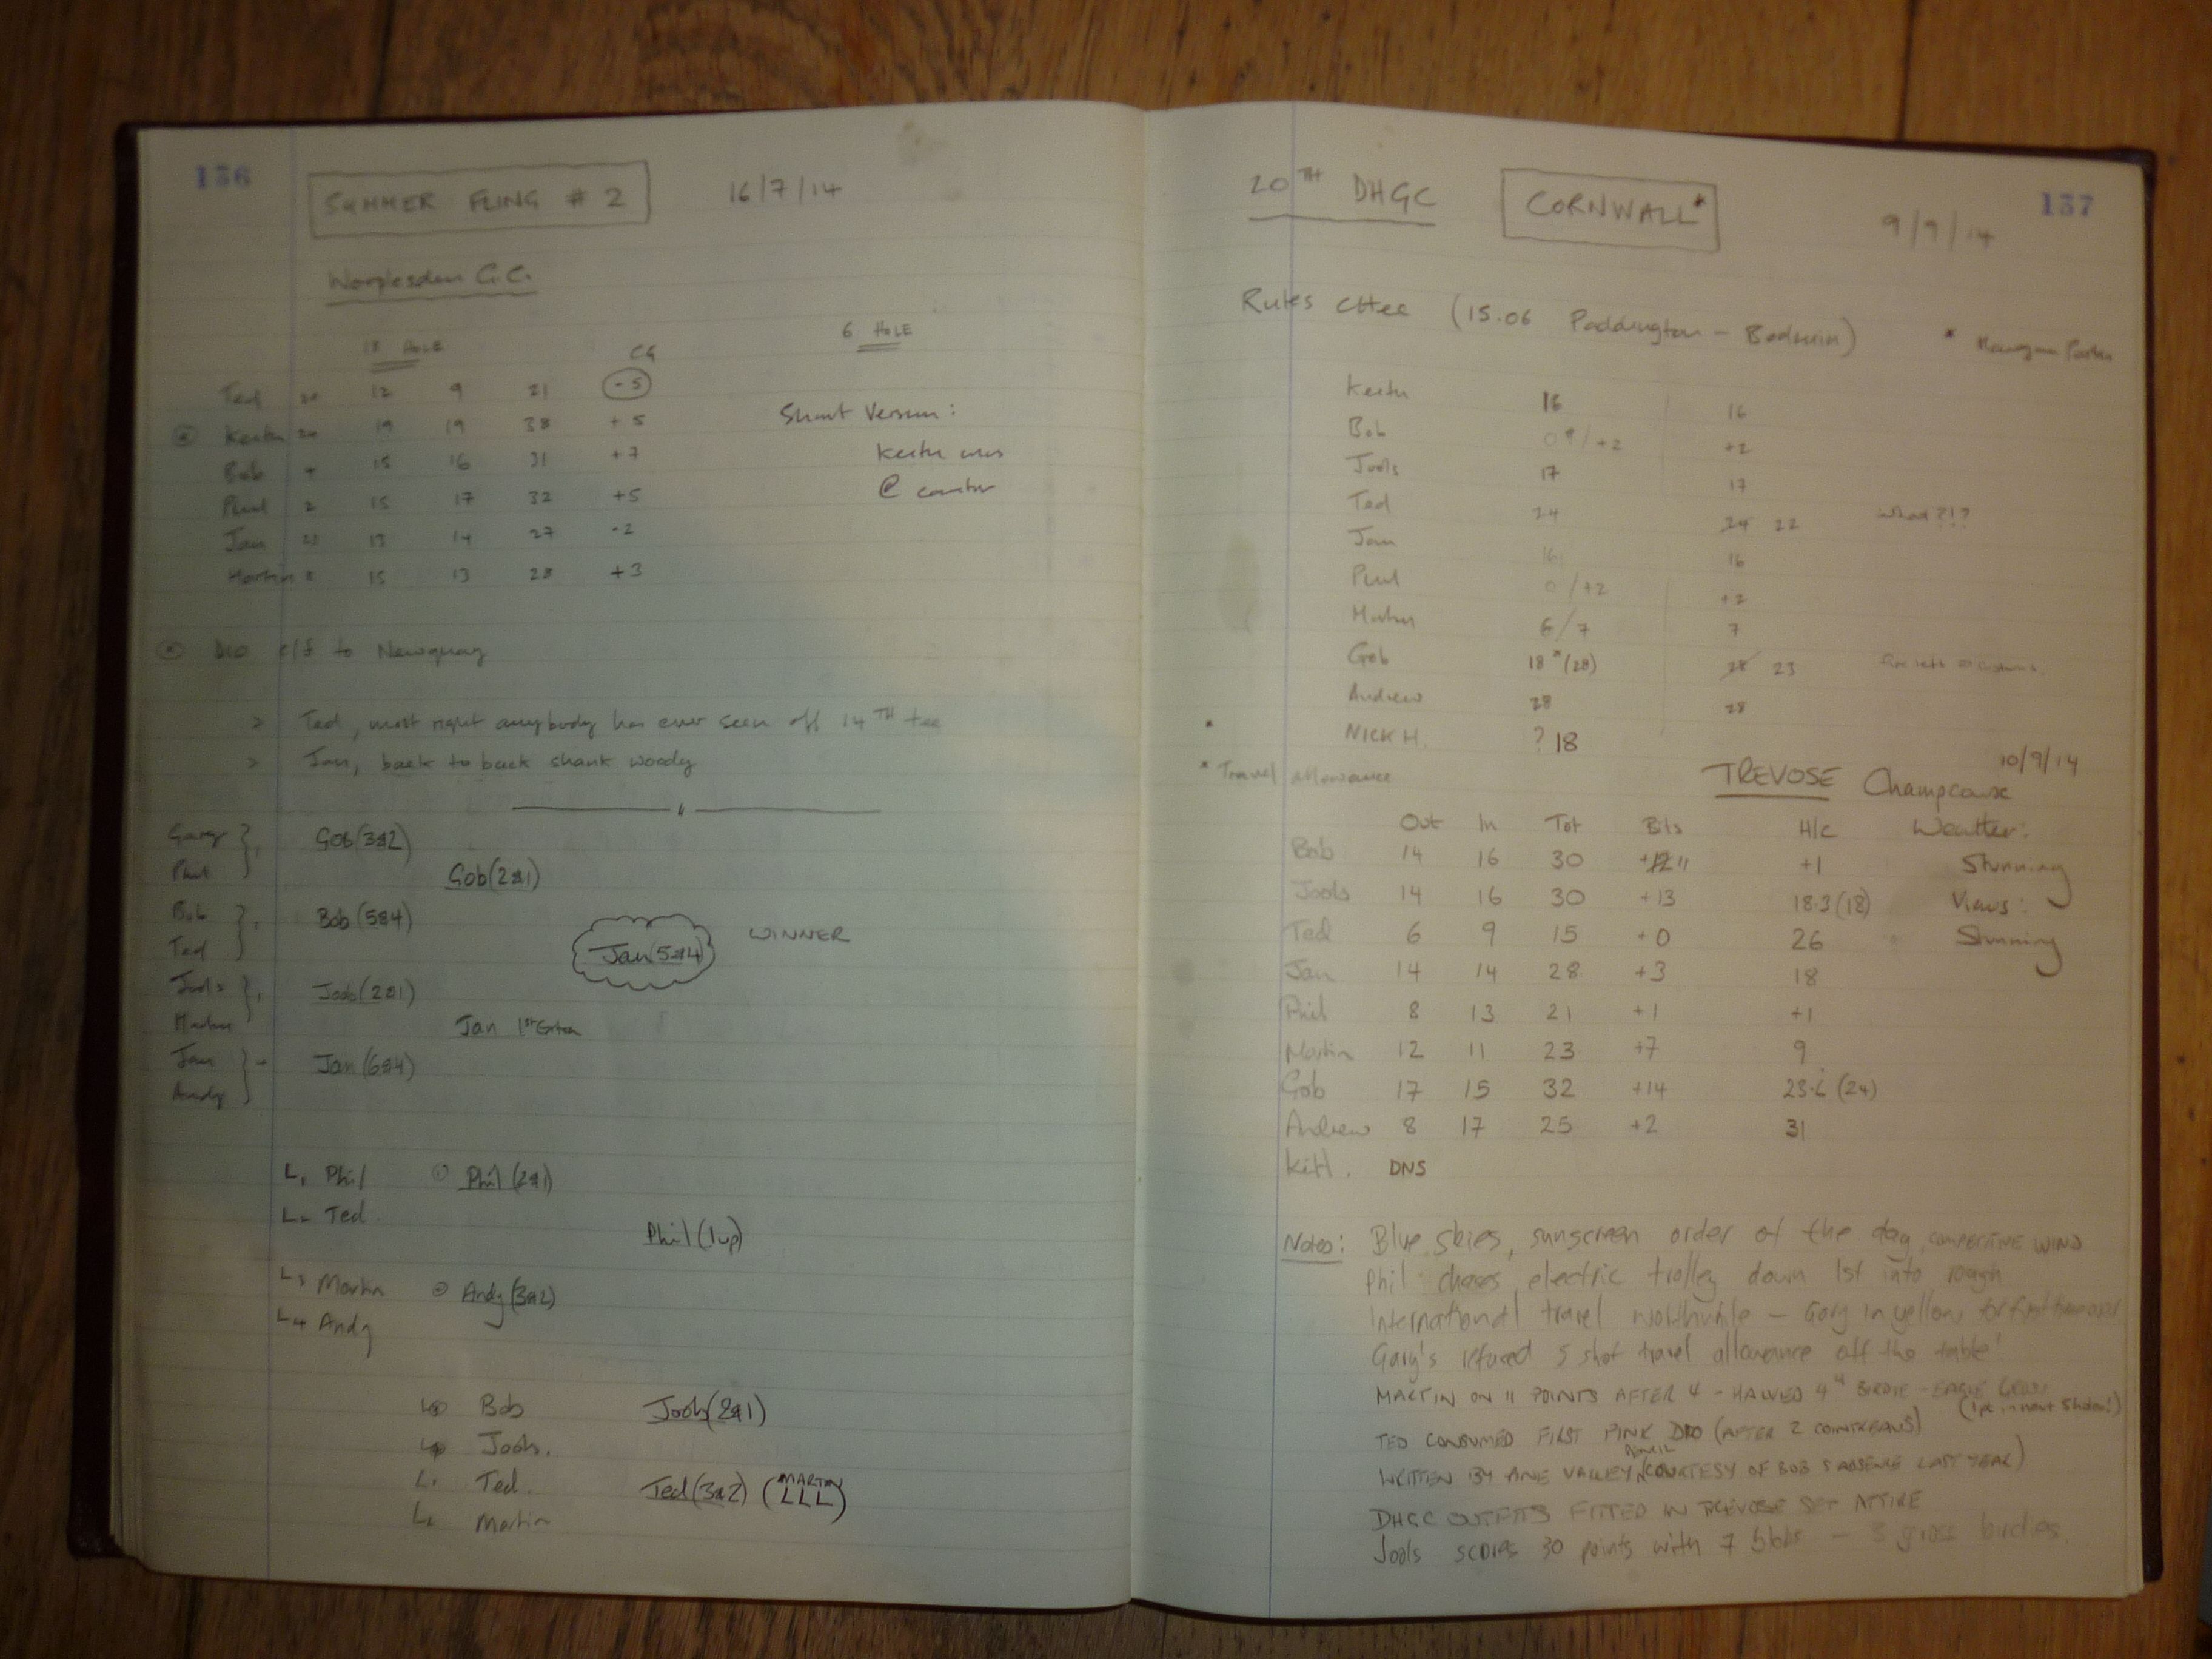 136
SUMMER FLING # 2 16/7/14
Worplesdon G.C.
18 HOLE 6 HOLE
CG
Ted 20 12 9 21 -5
Keith 24 19 19 38 +5
Bob 4 15 16 31 +7
Phil 2 15 17 32 +5
Jan 22 13 14 27 -2
Martin 8 15 13 28 +3
Short Version:
Keith wins
@ canter
DIO c/f to Newquay
> Ted, most right anybody has ever seen off 14TH tee
> Jan, back to back shank woody
Gary
Phil
Gob (3&2)
Gob (2&1)
Bob
Ted
Bob (5&4)
Jan (5&4) WINNER
Jools
Martin
Jools (2&1)
Jan 1st Extra
Jan
Andy
Jan (6&4)
L1 Phil ① Phil (2&1)
L2 Ted
Phil (1up)
L3 Martin ② Andy (3&2)
L4 Andy
Bob Jools (2&1)
Jools.
L1 Ted. Ted (3&2) (MARTIN LLL)
L2 Martin
137
20TH DHGC CORNWALL* 9/9/14
Rules Cttee (15.06 Paddington - Bodmin)
* Mawgan Porth
Keith 16 16
Bob 0*/+2 +2
Jools 17 17
Ted 24 24 22 What?!?
Jan 16 16
Phil 0/+2 +2
Martin 6/7 7
Gob 18*(28) 28 23
Andrew 28 28
* NICK H. ? 18
* Travel allowance
TREVOSE Champcourse 10/9/14
Out In Tot Bits H/C Weather:
Bob 14 16 30 +12 11 +1 Stunning
Jools 14 16 30 +13 18.3 (18) Views:
Ted 6 9 15 +0 26 Stunning
Jan 14 14 28 +3 18
Phil 8 13 21 +1 +1
Martin 12 11 23 +7 9
Gob 17 15 32 +14 23.6 (24)
Andrew 8 17 25 +2 31
Keith. DNS
Notes: Blue skies, sunscreen order of the day, COMPETITIVE WIND
Phil chases electric trolley down 1st into rough
International travel worthwhile - Gary in yellow for first time ever
Gary's refused 5 shot travel allowance off the table!
MARTIN ON 11 POINTS AFTER 4 - HALVED 4TH BIRDIE - EAGLE
(1pt in next 5 holes!)
TED CONSUMED FIRST PINK DIO (AFTER 2 COINTREAUS)
WRITTEN BY PINE VALLEY PENCIL (COURTESY OF BOB'S ABSENCE LAST YEAR)
DHGC OUTFITS FITTED IN TREVOSE SET ATTIRE
Jools SCORES 30 points with 7 blobs - 3 gross birdies